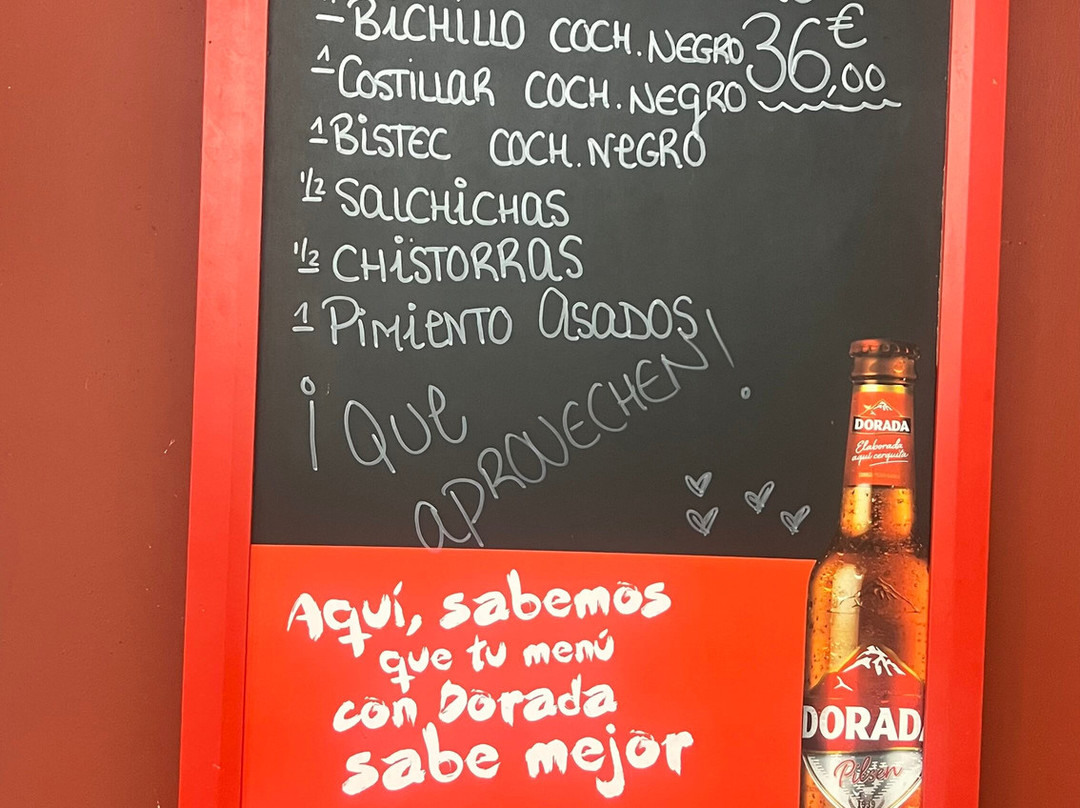 1 BICHILLO COCH. NEGRO 36,00 €
1 COSTILLAR COCH. NEGRO
1 BISTEC COCH. NEGRO
1/2 SALCHICHAS
1/2 CHISTORRAS
1 PIMIENTO ASADOS
¡QUE
APROVECHEN!
DORADA
Elaborada
aquí cerquita
Aquí, sabemos
que tu menú
con Dorada
sabe mejor
DORADA
Pilsen
1939